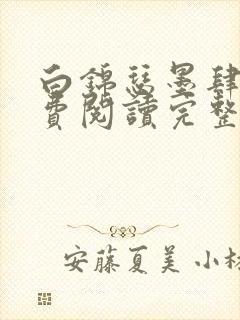 白錦瑟墨肆
費閱讀完整
安藤夏美 小林